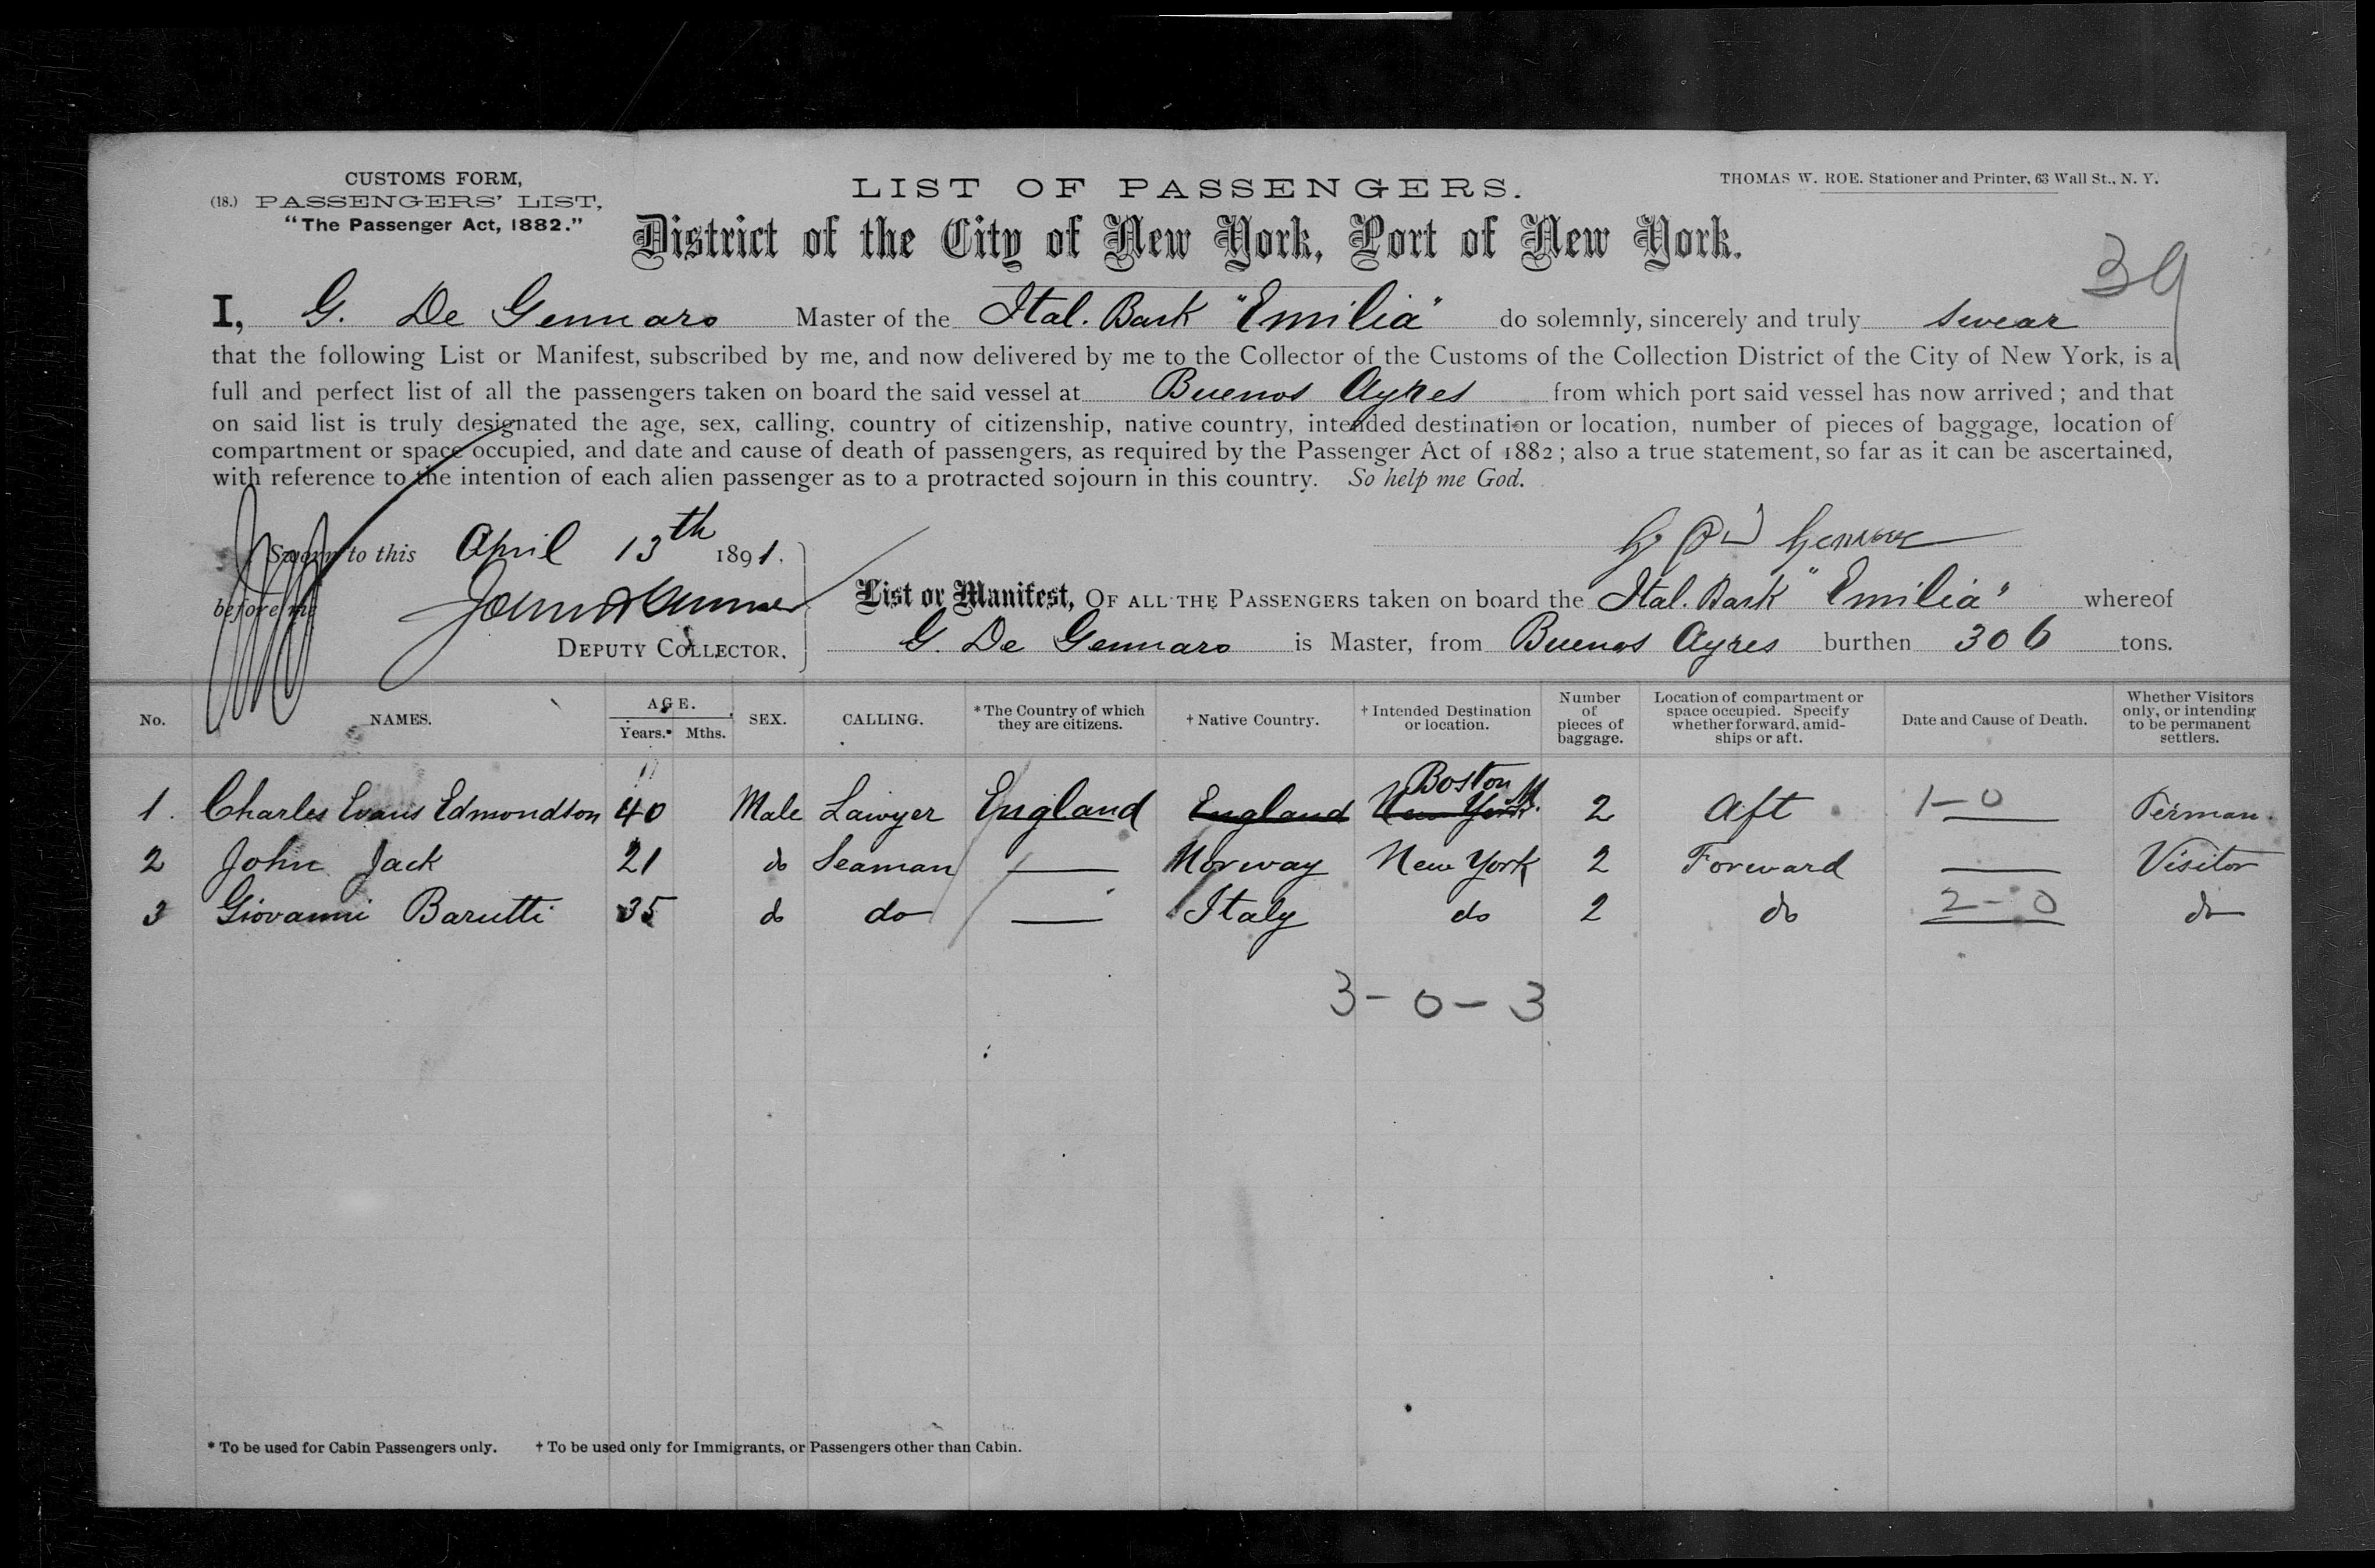 CUSTOMS FORM,
(18.) PASSENGERS' LIST,
"The Passenger Act, 1882."
LIST OF PASSENGERS.
THOMAS W. ROE. Stationer and Printer, 63 Wall St., N. Y.
District of the City of New York, Port of New York.
39
I, G. De Gennaro Master of the Ital. Bark "Emilia" do solemnly, sincerely and truly swear
that the following List or Manifest, subscribed by me, and now delivered by me to the Collector of the Customs of the Collection District of the City of New York, is a
full and perfect list of all the passengers taken on board the said vessel at Buenos Ayres from which port said vessel has now arrived; and that
on said list is truly designated the age, sex, calling, country of citizenship, native country, intended destination or location, number of pieces of baggage, location of
compartment or space occupied, and date and cause of death of passengers, as required by the Passenger Act of 1882; also a true statement, so far as it can be ascertained,
with reference to the intention of each alien passenger as to a protracted sojourn in this country. So help me God.
Sworn to this April 13th 1891.
before me
DEPUTY COLLECTOR.
List or Manifest, OF ALL THE PASSENGERS taken on board the Ital. Bark "Emilia" whereof
G. De Gennaro is Master, from Buenos Ayres burthen 306 tons.
No. NAMES. AGE. Years. Mths. SEX. CALLING. *The Country of which they are citizens. †Native Country. †Intended Destination or location. Number of pieces of baggage. Location of compartment or space occupied. Specify whether forward, amidships or aft. Date and Cause of Death. Whether Visitors only, or intending to be permanent settlers.
Boston
1. Charles Evans Edmondson 40 Male Lawyer England England New York 2 Aft 1-0 Perman.
2 John Jack 21 do Seaman — Norway New York 2 Forward — Visitor
3 Giovanni Barutti 35 do do — Italy do 2 do 2-0 do
3-0-3
* To be used for Cabin Passengers only. † To be used only for Immigrants, or Passengers other than Cabin.